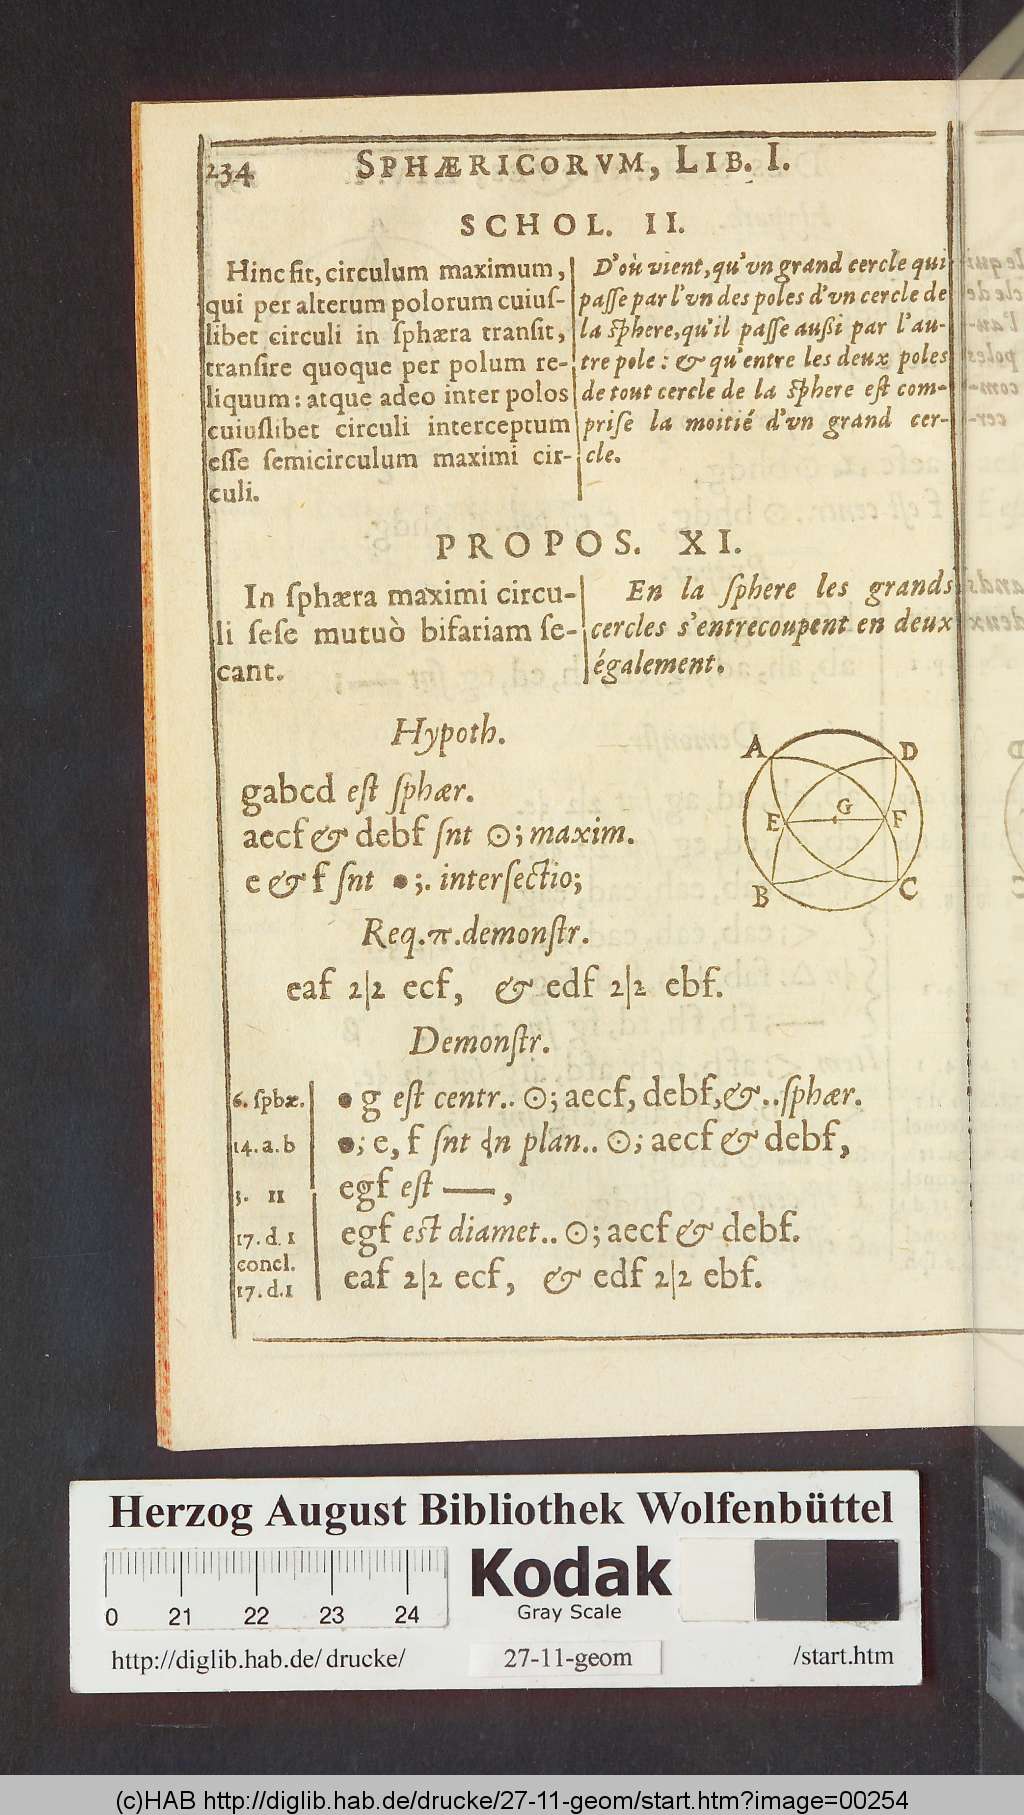 234 SPHÆRICORVM, LIB. I.
SCHOL. II.
Hinc fit, circulum maximum,
qui per alterum polorum cuiuſ-
libet circuli in ſphæra tranſit,
tranſire quoque per polum re-
liquum: atque adeo inter polos
cuiuſlibet circuli interceptum
eſſe ſemicirculum maximi cir-
culi.
D'où vient, qu'vn grand cercle qui
paſſe par l'vn des poles d'vn cercle de
la ſphere, qu'il paſſe außi par l'au-
tre pole: & qu'entre les deux poles
de tout cercle de la ſphere eſt com-
priſe la moitié d'vn grand cer-
cle.
PROPOS. XI.
In ſphæra maximi circu-
li ſeſe mutuò bifariam ſe-
cant.
En la ſphere les grands
cercles s'entrecoupent en deux
également.
Hypoth.
gabcd eſt ſphær.
aecf & debf ſnt ⊙; maxim.
e & f ſnt •;. interſectio;
A D
E G F
B C
Req. π. demonſtr.
eaf 2|2 ecf, & edf 2|2 ebf.
Demonſtr.
6. ſphæ. • g eſt centr.. ⊙; aecf, debf, &.. ſphær.
14. a. b •; e, f ſnt in plan.. ⊙; aecf & debf,
3. 11 egf eſt —,
17. d. 1 egf est diamet.. ⊙; aecf & debf.
concl.
17. d. 1 eaf 2|2 ecf, & edf 2|2 ebf.
Herzog August Bibliothek Wolfenbüttel
0 21 22 23 24
Kodak
Gray Scale
http://diglib.hab.de/ drucke/ 27-11-geom /start.htm
(c)HAB http://diglib.hab.de/drucke/27-11-geom/start.htm?image=00254